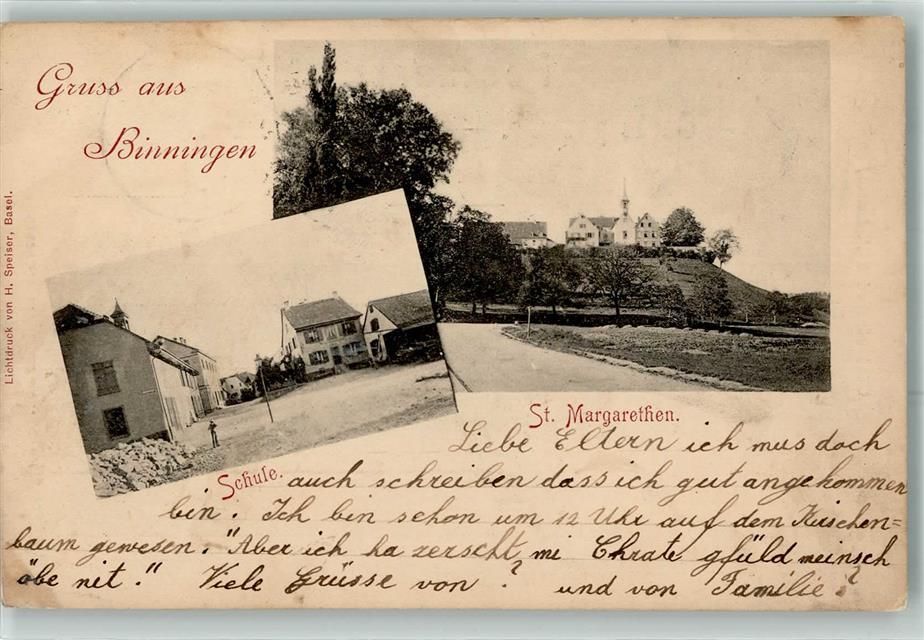 Gruss aus
Binningen
Lichtdruck von H. Speiser, Basel.
St. Margarethen.
Schule.
Liebe Eltern ich mus doch
auch schreiben dass ich gut angekommen
bin. Ich bin schon um 12 Uhr auf dem Kirschen=
baum gewesen. "Aber ich ha zerscht mi Chrate gfüld meinsch
öbe nit." Viele Grüsse von ? und von Familie ?